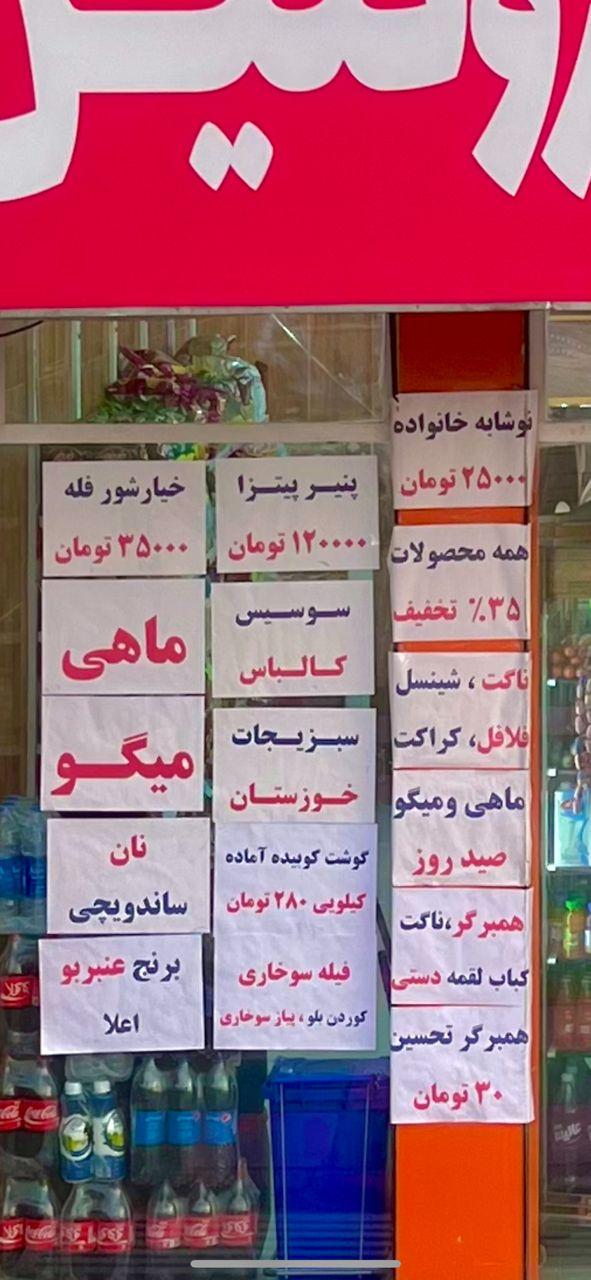 نوشابه خانواده
۲۵۰۰۰ تومان
همه محصولات
۳۵٪ تخفیف
ناگت، شینسل
فلافل، کراکت
ماهی ومیگو
صید روز
همبرگر،ناگت
کباب لقمه دستی
همبرگر تحسین
۳۰ تومان
پنیر پیتزا
۱۲۰۰۰۰ تومان
سوسیس
کالباس
سبزیجات
خوزستان
گوشت کوبیده آماده
کیلویی ۲۸۰ تومان
فیله سوخاری
کوردن بلو، پیاز سوخاری
خیارشور فله
۳۵۰۰۰ تومان
ماهی
میگو
نان
ساندویچی
برنج عنبربو
اعلا
Coca-Cola